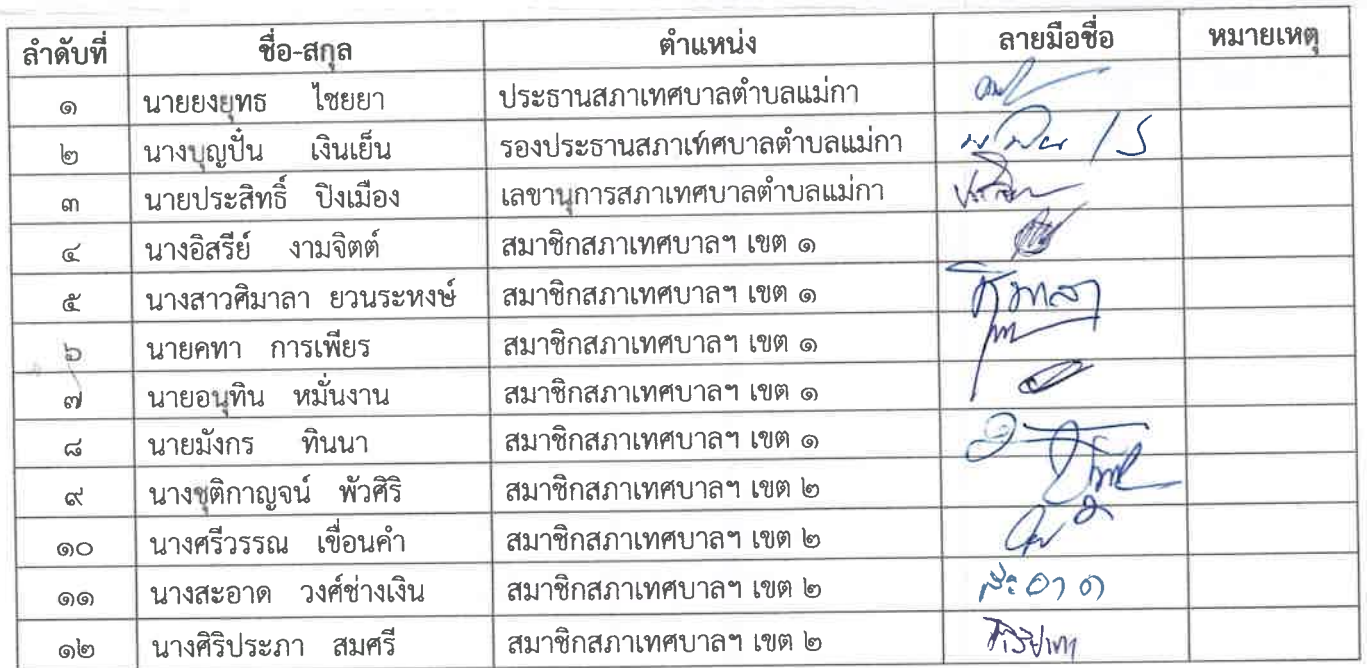 ลำดับที่ ชื่อ-สกุล ตำแหน่ง ลายมือชื่อ หมายเหตุ
๑ นายยงยุทธ ไชยยา ประธานสภาเทศบาลตำบลแม่กา
๒ นางบุญปั๋น เงินเย็น รองประธานสภาเทศบาลตำบลแม่กา
๓ นายประสิทธิ์ ปิงเมือง เลขานุการสภาเทศบาลตำบลแม่กา
๔ นางอิสรีย์ งามจิตต์ สมาชิกสภาเทศบาลฯ เขต ๑
๕ นางสาวศิมาลา ยวนระหงษ์ สมาชิกสภาเทศบาลฯ เขต ๑ ศิมาลา
๖ นายคทา การเพียร สมาชิกสภาเทศบาลฯ เขต ๑
๗ นายอนุทิน หมั่นงาน สมาชิกสภาเทศบาลฯ เขต ๑
๘ นายมังกร ทินนา สมาชิกสภาเทศบาลฯ เขต ๑
๙ นางชุติกาญจน์ พัวศิริ สมาชิกสภาเทศบาลฯ เขต ๒
๑๐ นางศรีวรรณ เขื่อนคำ สมาชิกสภาเทศบาลฯ เขต ๒
๑๑ นางสะอาด วงศ์ช่างเงิน สมาชิกสภาเทศบาลฯ เขต ๒ สะอาด
๑๒ นางศิริประภา สมศรี สมาชิกสภาเทศบาลฯ เขต ๒